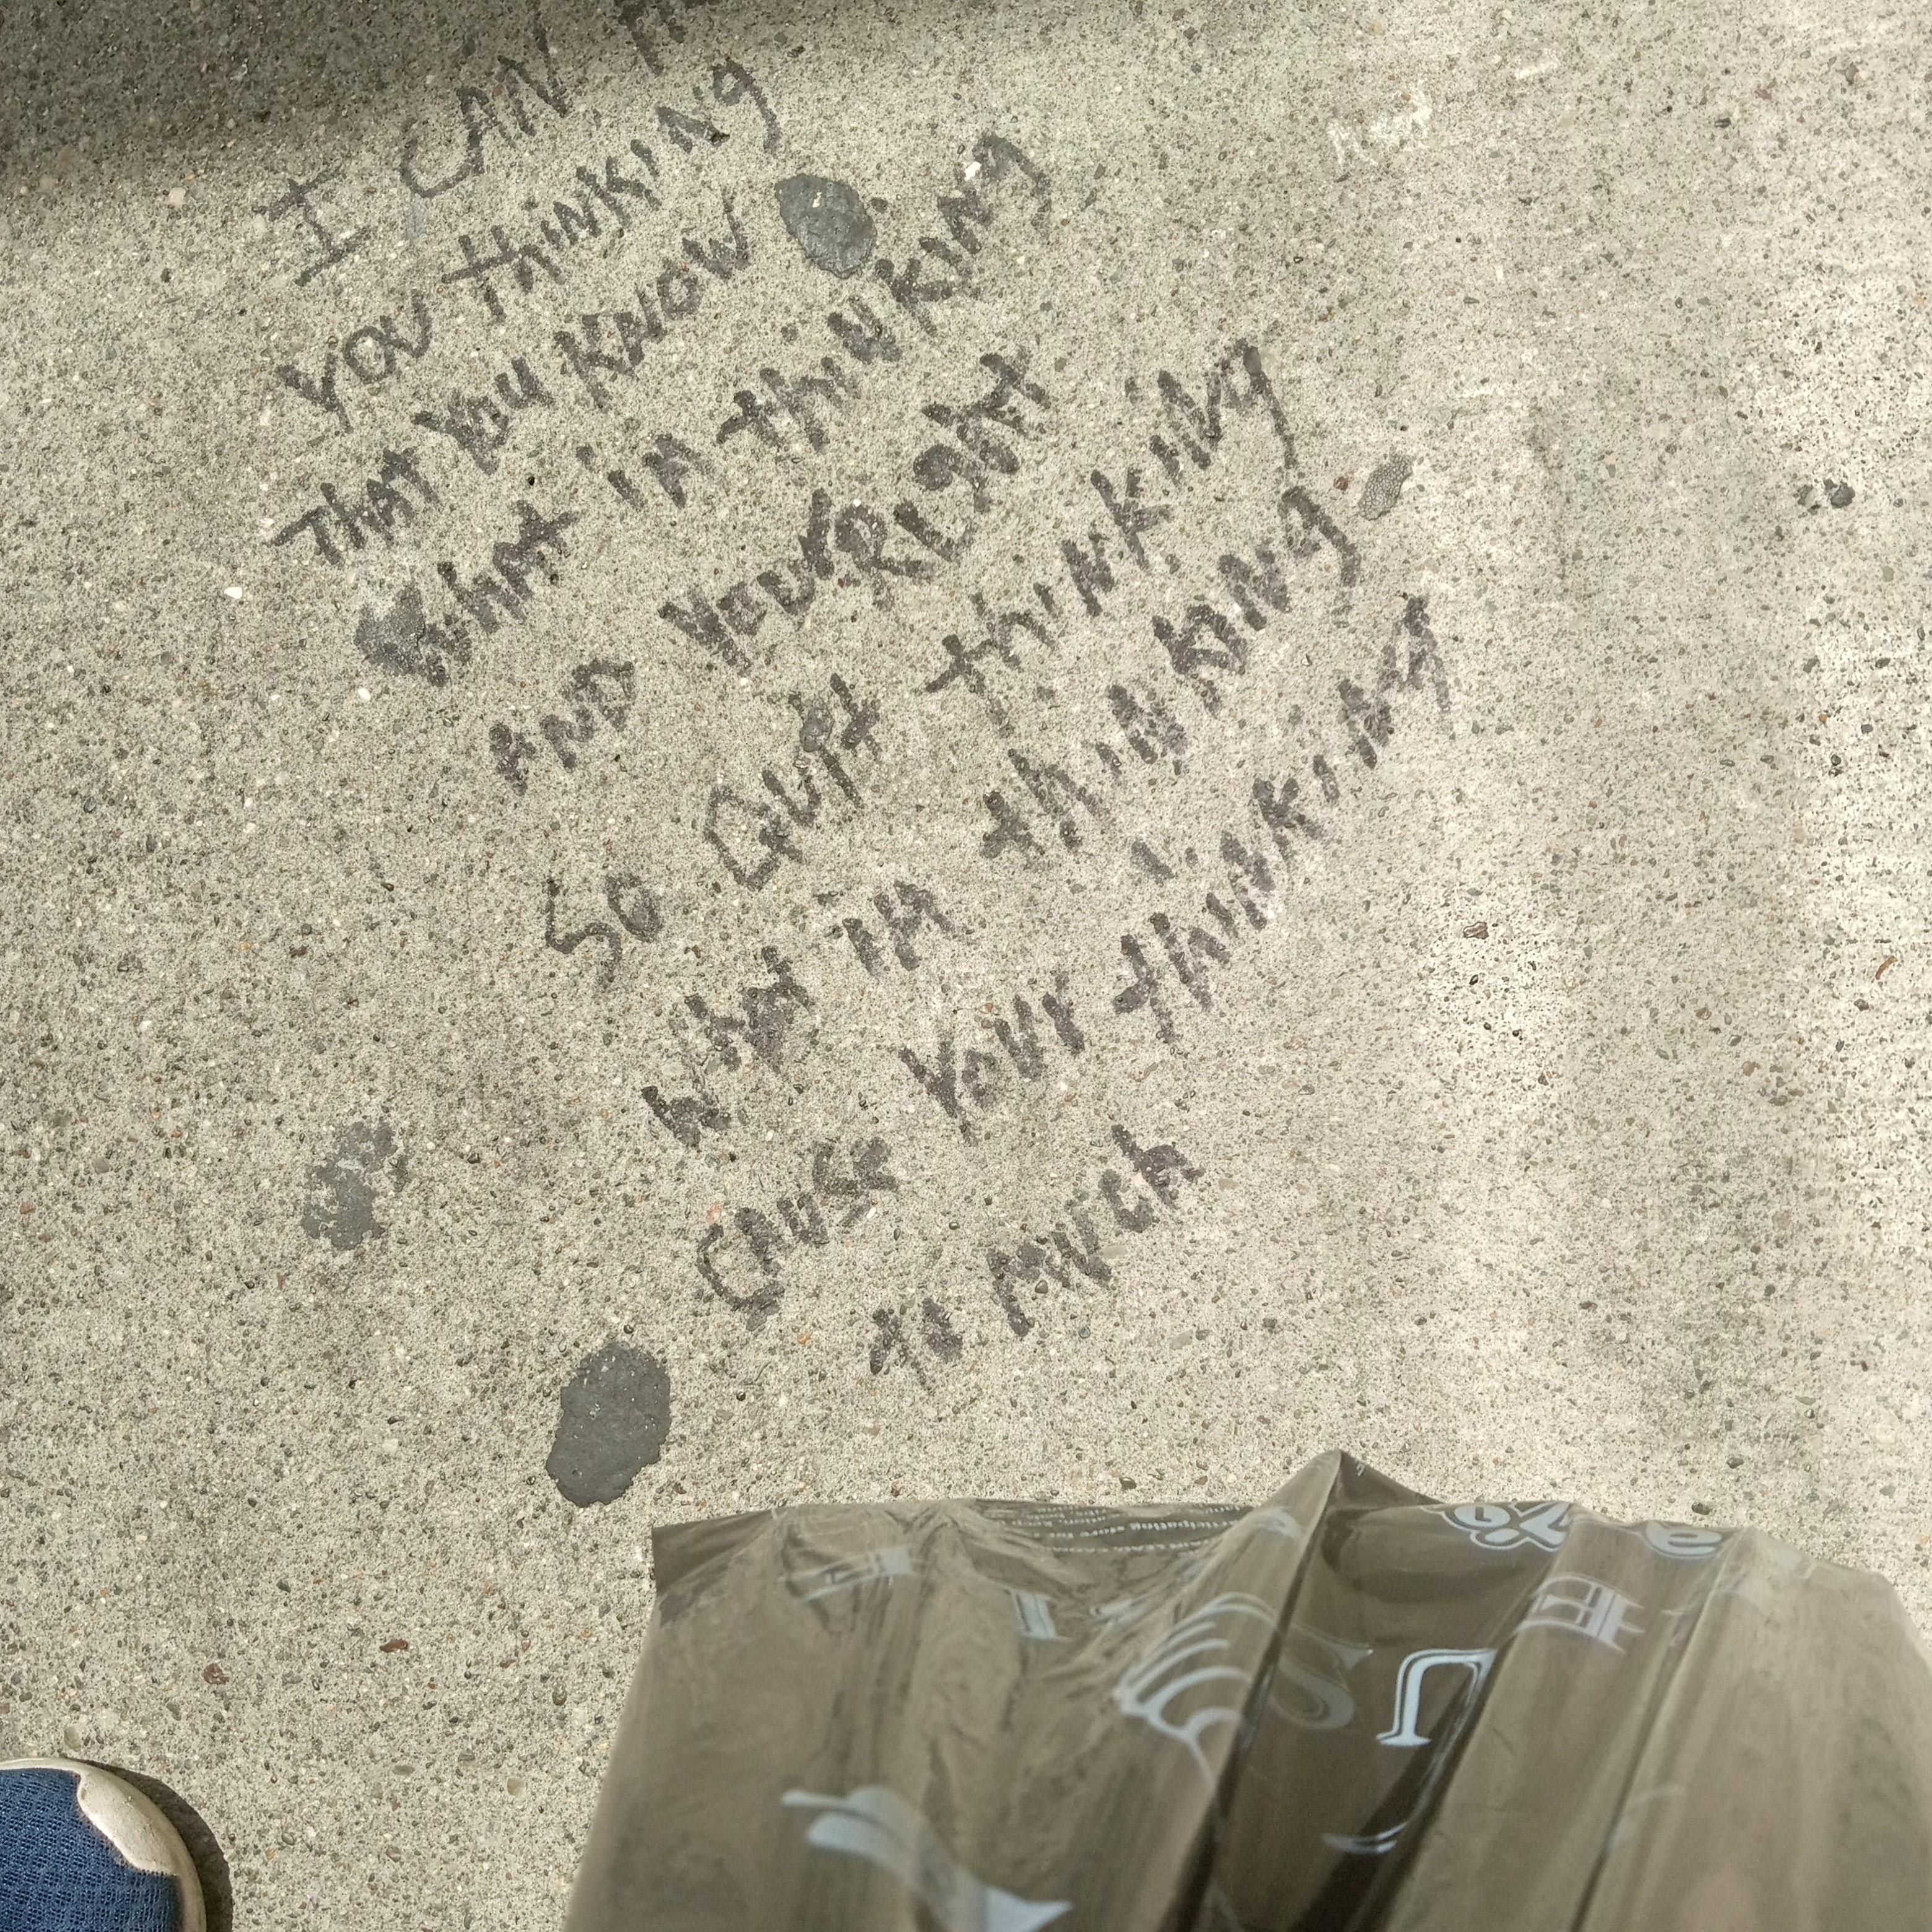 I CAN
YOU thinKiNg
That YOU KNOW
what im thiNKiNg
AND YOUR Right
SO Quit thiNKiNg
what im thiNKiNg
CAUSE YOUr thiNKiNg
to MUCh